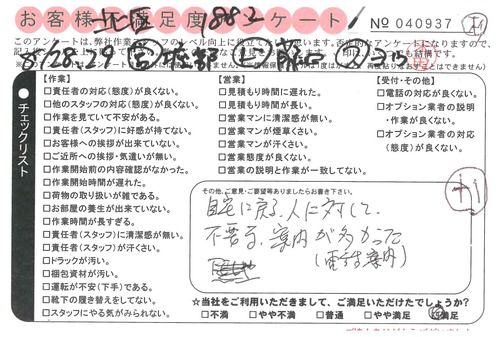 お客様 満足度 ケート
北区 1883
No 040937
このアンケートは、弊社作業スタッフのレベル向上に役立
8/28・29
チェックリスト
【作業】
□責任者の対応(態度)が良くない。
□他のスタッフの対応(態度)が良くない。
□作業を見ていて不安がある。
□責任者(スタッフ)に好感が持てない。
□お客様への挨拶が出来ていない。
□ご近所への挨拶・気遣いが無い。
□作業開始前の内容確認がなかった。
□作業開始時間が遅れた。
□荷物の取り扱いが雑である。
□お部屋の養生が出来ていない。
□作業時間が長すぎる。
□責任者(スタッフ)に清潔感が無い。
□責任者(スタッフ)が汗くさい。
□トラックが汚い。
□梱包資材が汚い。
□運転が不安(下手)である。
□靴下の履き替えをしてない。
□スタッフにやる気がみられない。
【営業】
□見積もり時間に遅れた。
□見積もり時間が長い。
□営業マンに清潔感が無い。
□営業マンが煙草くさい。
□営業マンが汗くさい。
□営業態度が良くない。
□営業の説明と作業が一致してない。
【受付・その他】
□電話の対応が良くない。
□オプション業者の説明
・作業が良くない。
□オプション業者の対応
(態度)が良くない。
その他、ご意見・ご要望等ありましたらお書き下さい。
自宅に戻る人に対して、
不要な案内が多かった
(電話案内)
☆当社をご利用いただきまして、ご満足いただけたでしょうか?
□不満 □やや不満 □普通 □やや満足 満足